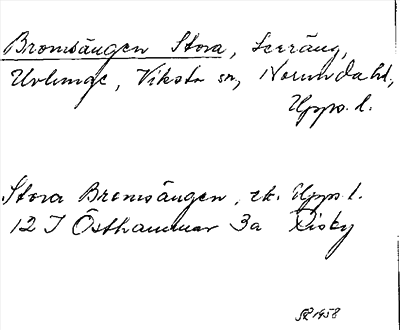 Bromsängen Stora, Screäng,
Urlenge, Viksta sn, Norunda hd,
Upps. l.
Stora Bromsängen, ek. Upps l.
12 I Östhammar 3a Risby
1958